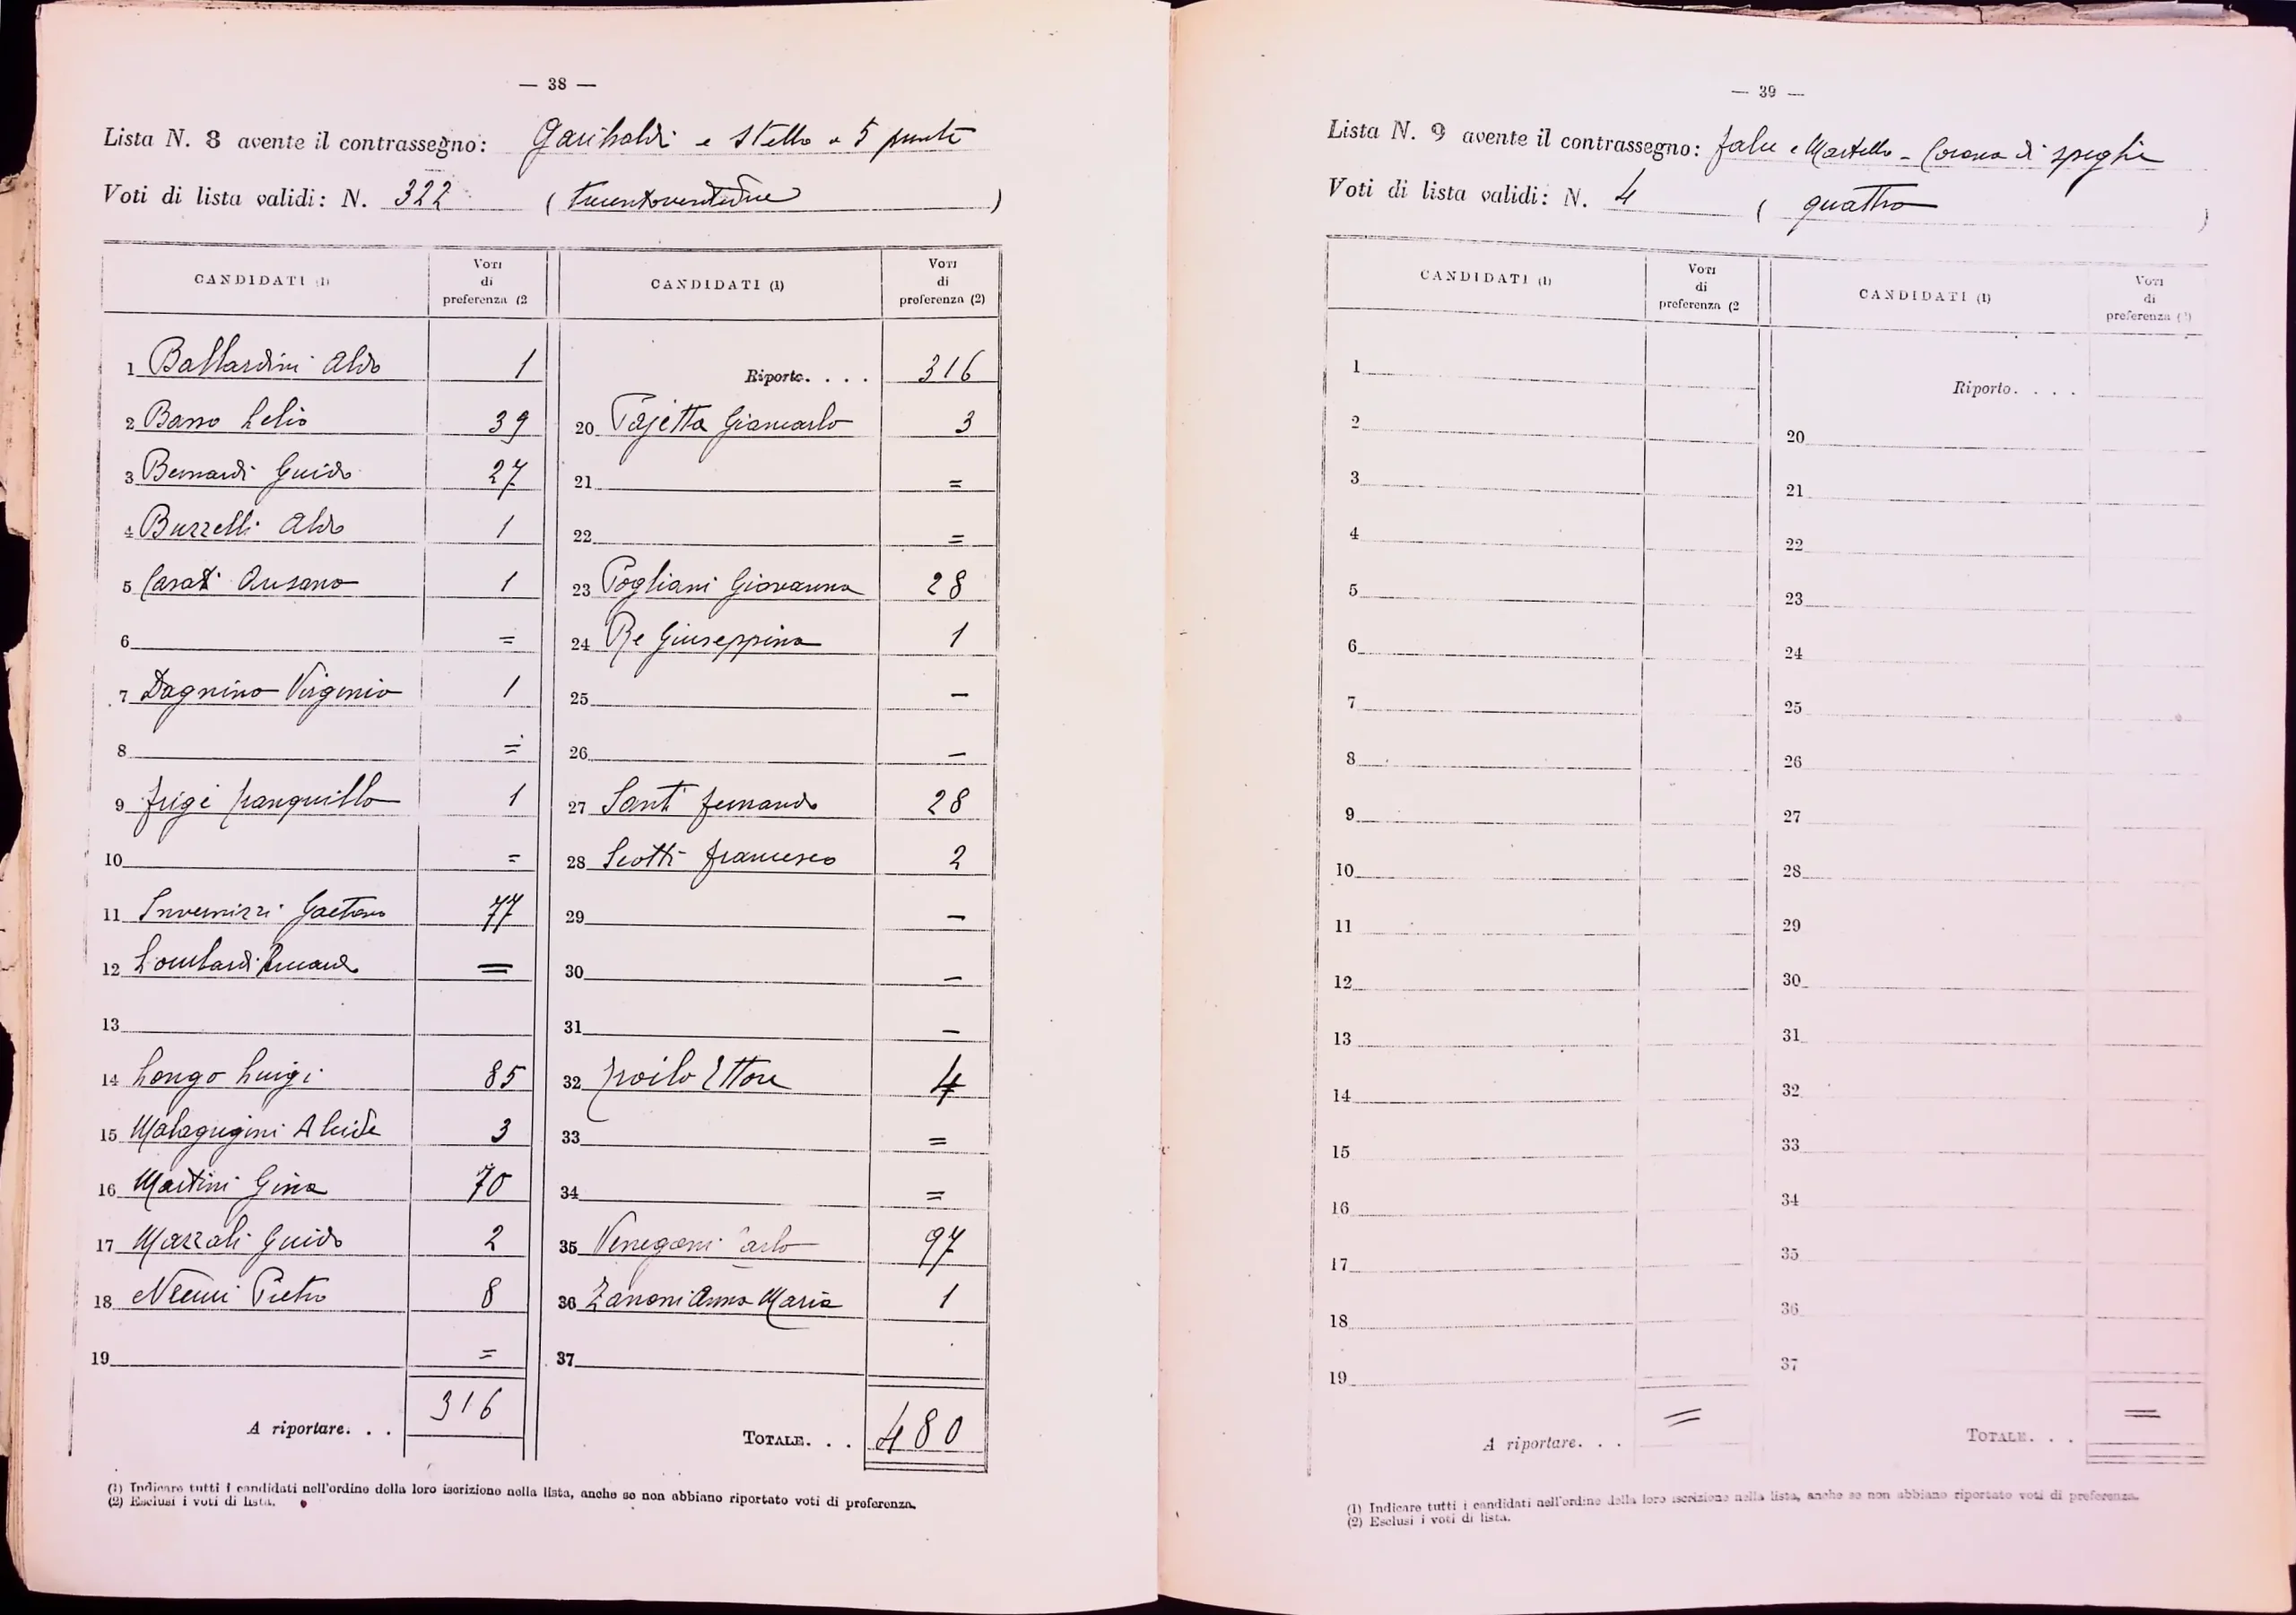 — 38 —
Lista N. 8 avente il contrassegno: Garibaldi e stella a 5 punte
Voti di lista validi: N. 322 (trecentoventidue)
CANDIDATI (1) Voti di preferenza (2 CANDIDATI (1) Voti di preferenza (2)
1 Ballardini Aldo 1 Riporto. . . . 316
2 Basso Lelio 39 20 Pajetta Giancarlo 3
3 Bernardi Guido 27 21 =
4 Buzzelli Aldo 1 22 =
5 Casati Ausano 1 23 Pogliani Giovanna 28
6 = 24 Re Giuseppina 1
7 Dagnino Virginio 1 25 —
8 = 26 —
9 Frigé Tranquillo 1 27 Santi Fernando 28
10 = 28 Scotti Francesco 2
11 Invernizzi Gaetano 77 29 —
12 Lombardi = 30 —
13 31 —
14 Longo Luigi 85 32 Troilo Ettore 4
15 Malagugini Alcide 3 33 =
16 Martini Gina 70 34 =
17 Mazzali Guido 2 35 Venegoni Carlo 97
18 Nenni Pietro 8 36 Zanoni Anna Maria 1
19 = 37
A riportare. . . 316 TOTALE. . . 480
(1) Indicare tutti i candidati nell'ordine della loro iscrizione nella lista, anche se non abbiano riportato voti di preferenza.
(2) Esclusi i voti di lista.
— 39 —
Lista N. 9 avente il contrassegno: Falce e Martello - Corona di speghe
Voti di lista validi: N. 4 (quattro)
CANDIDATI (1) Voti di preferenza (2 CANDIDATI (1) Voti di preferenza (2)
1 Riporto. . . .
2 20
3 21
4 22
5 23
6 24
7 25
8 26
9 27
10 28
11 29
12 30
13 31
14 32
15 33
16 34
17 35
18 36
19 37
A riportare. . . = TOTALE. . . =
(1) Indicare tutti i candidati nell'ordine della loro iscrizione nella lista, anche se non abbiano riportato voti di preferenza.
(2) Esclusi i voti di lista.